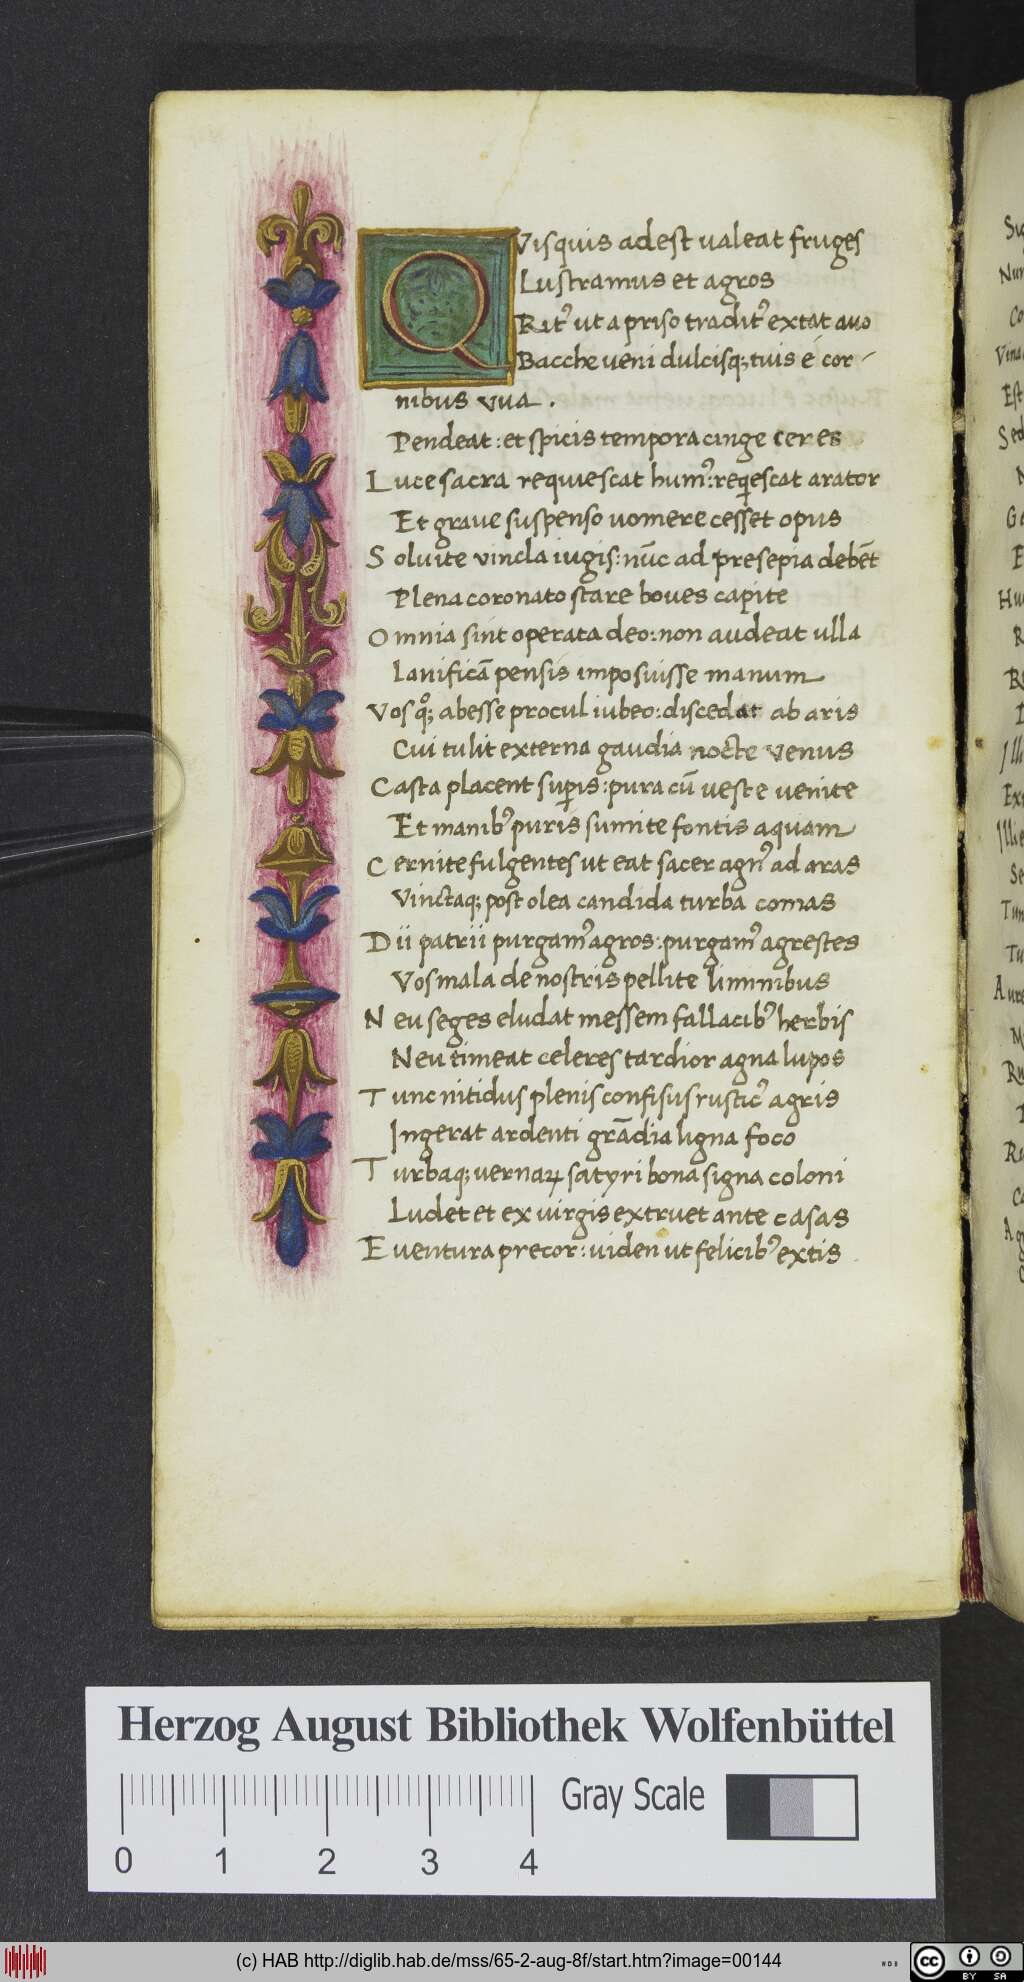 QVisquis adest ualeat fruges
Lustramus et agros
Rit᾽ ut a priso tradit᾽ extat auo
Bacche ueni dulcisq; tuis é cor-
nibus vua .
Pendeat : et spicis tempora cinge ceres
Luce sacra requiescat hum᾽: reqescat arator
Et graue suspenso uomere cesset opus
Soluite vincla iugis: nūc ad presepia debēt
Plena coronato stare boues capite
Omnia sint operata deo: non audeat ulla
Lanificā pensis imposuisse manum
Vos qͦ; abesse procul iubeo: discedat ab aris
Cui tulit externa gaudia nocte venus
Casta placent supis: pura cū ueste uenite
Et manib᾽ puris sumite fontis aquam
Cernite fulgentes ut eat sacer agn᾽ ad aras
Vinctaq; post olea candida turba comas
Dii patrii purgam᾽ agros: purgam᾽ agrestes
Vos mala de nostris pellite liminibus
Neu seges eludat messem fallacib᾽ herbis
Neu timeat celeres tardior agna lupos
Tunc nitidus plenis confisus rustic᾽ agris
Ingerat ardenti grādia ligna foco
Turbaq; vernaꝝ satyri bona signa coloni
Ludet et ex uirgis extruet ante casas
Euentura precor: uiden ut felicib᾽ extis
Herzog August Bibliothek Wolfenbüttel
Gray Scale
0 1 2 3 4
(c) HAB http://diglib.hab.de/mss/65-2-aug-8f/start.htm?image=00144
cc BY SA